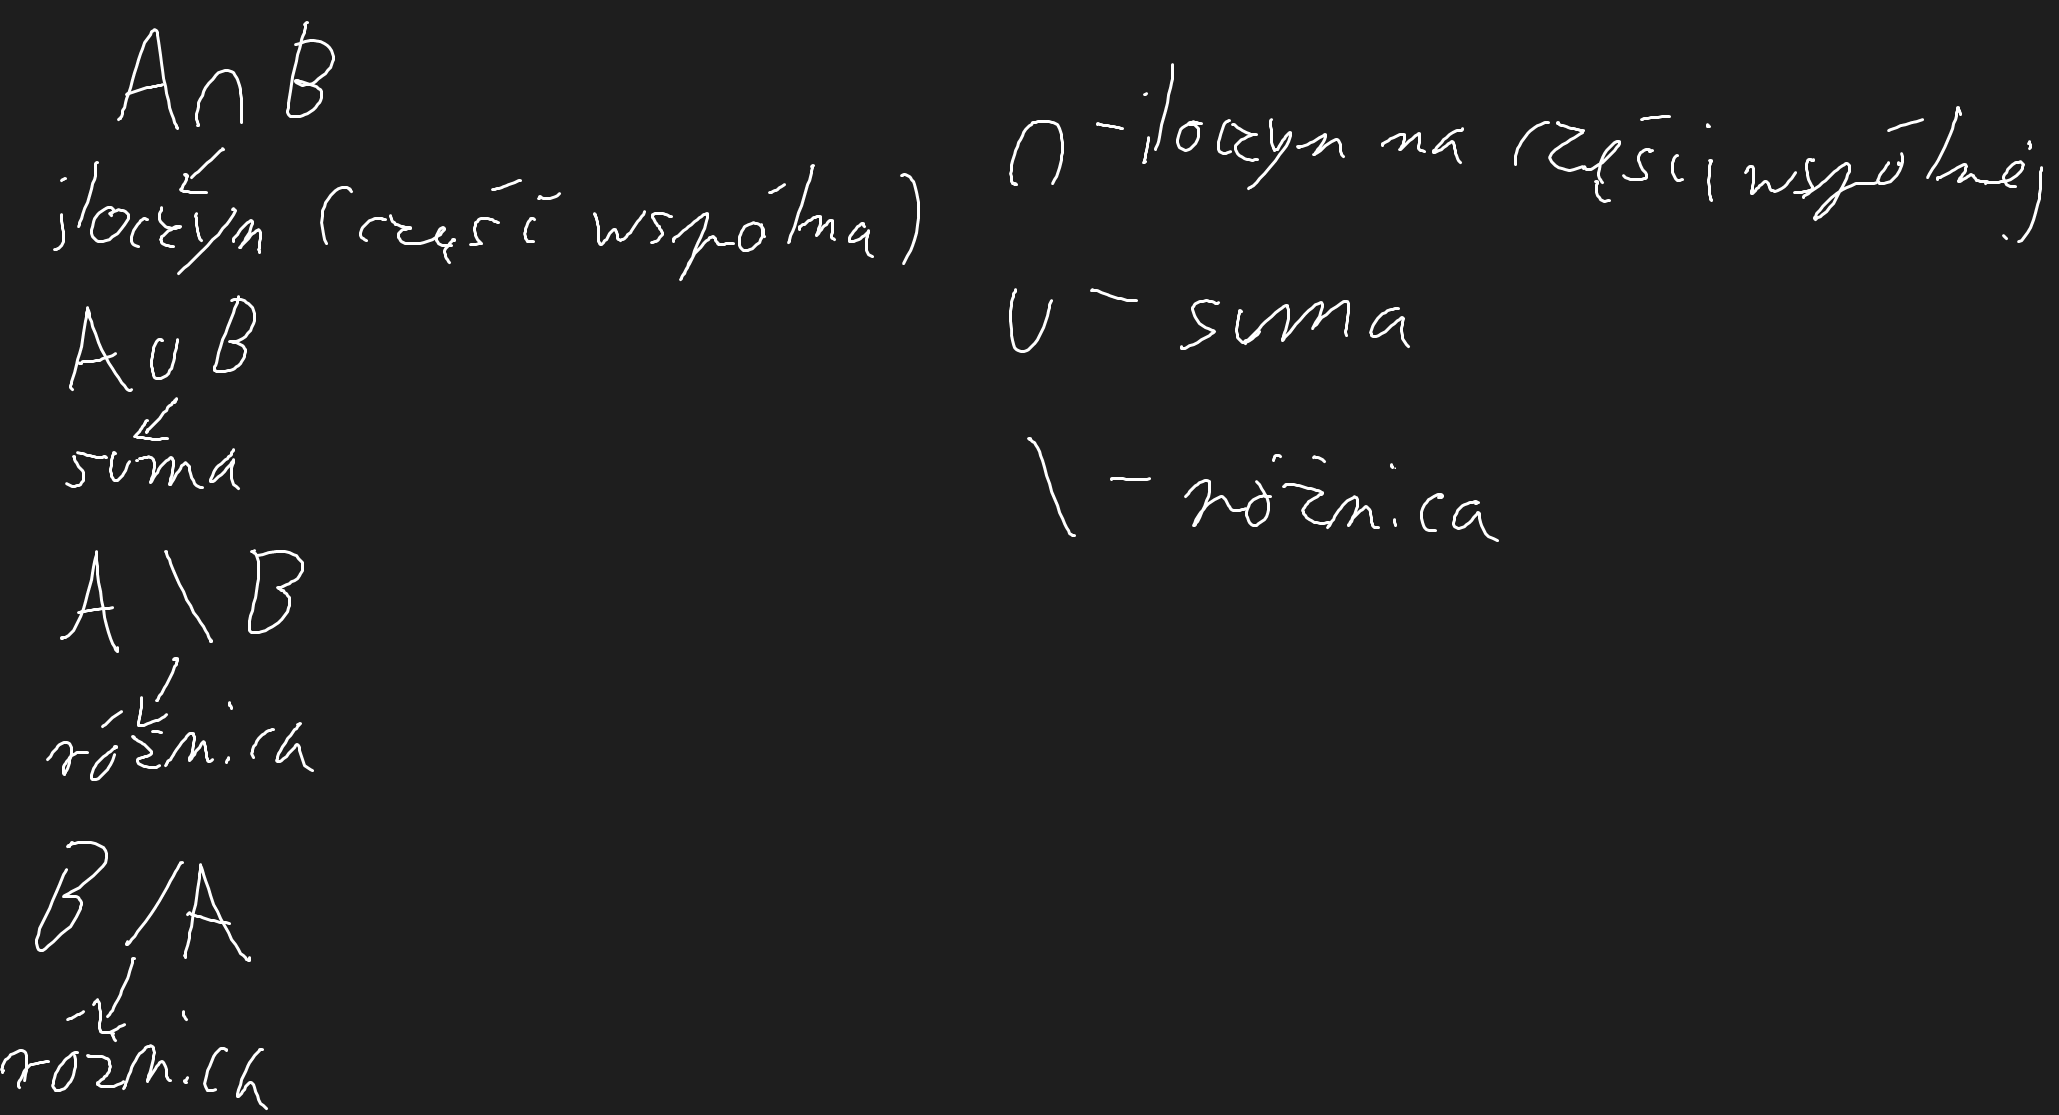 A∩B
iloczyn (część wspólna)
A∪B
suma
A \ B
różnica
B / A
różnica
∩ - iloczyn na części wspólnej
∪ - suma
\ - różnica